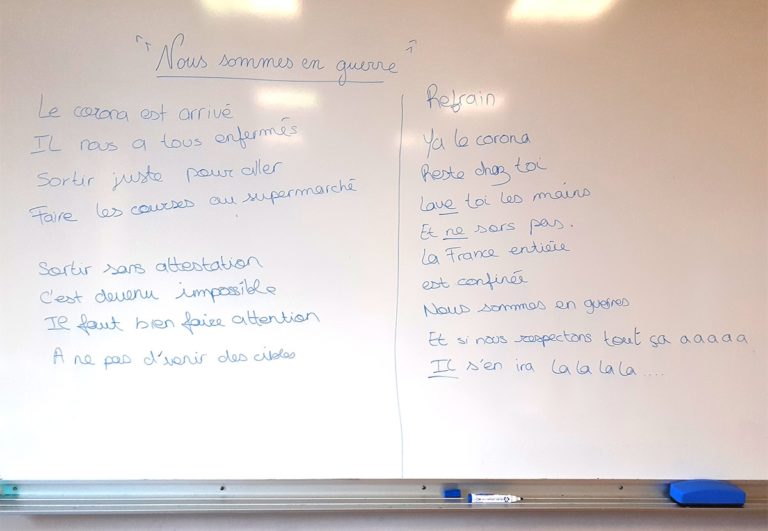 "Nous sommes en guerre"
Le corona est arrivé
IL nous a tous enfermés
Sortir juste pour aller
Faire les courses au supermarché
Sortir sans attestation
C'est devenu impossible
Il faut bien faire attention
A ne pas d'venir des cibles
Refrain
Ya le corona
Reste chez toi
Lave toi les mains
Et ne sors pas.
La France entière
est confinée
Nous sommes en guerres
Et si nous respectons tout ça a a a a a
IL s'en ira La la la la ....